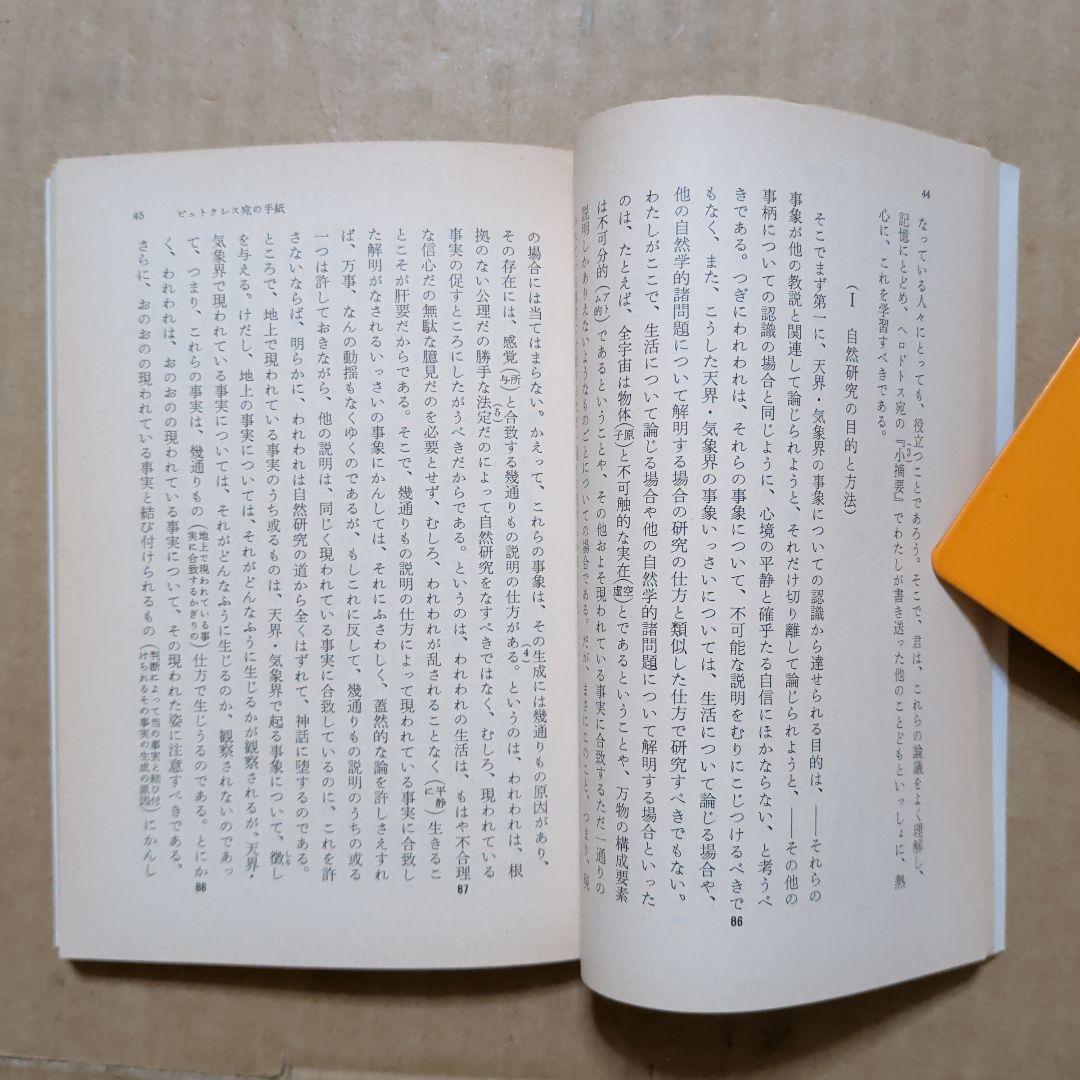 44
なっている人々にとっても、役立つことであろう。そこで、君は、これらの論議をよく理解し、
記憶にとどめ、ヘロドトス宛の『小摘要』(3)でわたしが書き送った他のことどもといっしょに、熱
心に、これを学習すべきである。
(Ⅰ 自然研究の目的と方法)
そこでまず第一に、天界・気象界の事象についての認識から達せられる目的は、——それらの
事象が他の教説と関連して論じられようと、それだけ切り離して論じられようと、——その他の
事柄についての認識の場合と同じように、心境の平静と確乎たる自信にほかならない、と考うべ
きである。つぎにわれわれは、それらの事象について、不可能な説明をむりにこじつけるべきで 86
もなく、また、こうした天界・気象界の事象いっさいについては、生活について論じる場合や、
他の自然学的諸問題について解明する場合の研究の仕方と類似した仕方で研究すべきでもない。
わたしがここで、生活について論じる場合や他の自然学的諸問題について解明する場合といった
のは、たとえば、全宇宙は物体(原子)と不可触的な実在(空虚)とであるということや、万物の構成要素
は不可分的(アトム的)であるということや、その他およそ現われている事実に合致するただ一通りの
説明しかありえないようなものごとについての場合である。だが、まさにこのこと、つまり、現
45 ピュトクレス宛の手紙
の場合には当てはまらない。かえって、これらの事象は、その生成には幾通りもの原因があり、
その存在には、感覚(所与)と合致する幾通りもの説明の仕方がある。(4)というのは、われわれは、根
拠のない公理だの勝手な法定(5)だのによって自然研究をなすべきではなく、むしろ、現われている
事実の促すところにしたがうべきだからである。というのは、われわれの生活は、もはや不合理 87
な信心だの無駄な臆見だのを必要とせず、むしろ、われわれが乱されることなく(平静に)生きるこ
とこそが肝要だからである。そこで、幾通りもの説明の仕方によって現われている事実に合致し
た解明がなされるいっさいの事象にかんしては、それにふさわしく、蓋然的な論を許しさえすれ
ば、万事、なんの動揺もなくゆくのであるが、もしこれに反して、幾通りもの説明のうちの或る
一つは許しておきながら、他の説明は、同じく現われている事実に合致しているのに、これを許
さないならば、明らかに、われわれは自然研究の道から全くはずれて、神話に堕するのである。
ところで、地上で現われている事実のうち或るものは、天界・気象界で起る事象について、徴しるし
を与える。けだし、地上の事実については、それがどんなふうに生じるかが観察されるが、天界・
気象界で現われている事実については、それがどんなふうに生じるのか、観察されないのであっ
て、つまり、これらの事実は、幾通りもの(地上で現われている事実に合致するかぎりの)仕方で生じうるのである。とにか 88
く、われわれは、おのおのの現われている事実について、その現われた姿に注意すべきである。
さらに、おのおのの現われている事実と結び付けられるもの(判断によって当の事実と結び付けられるその事実の生成の原因)にかんし